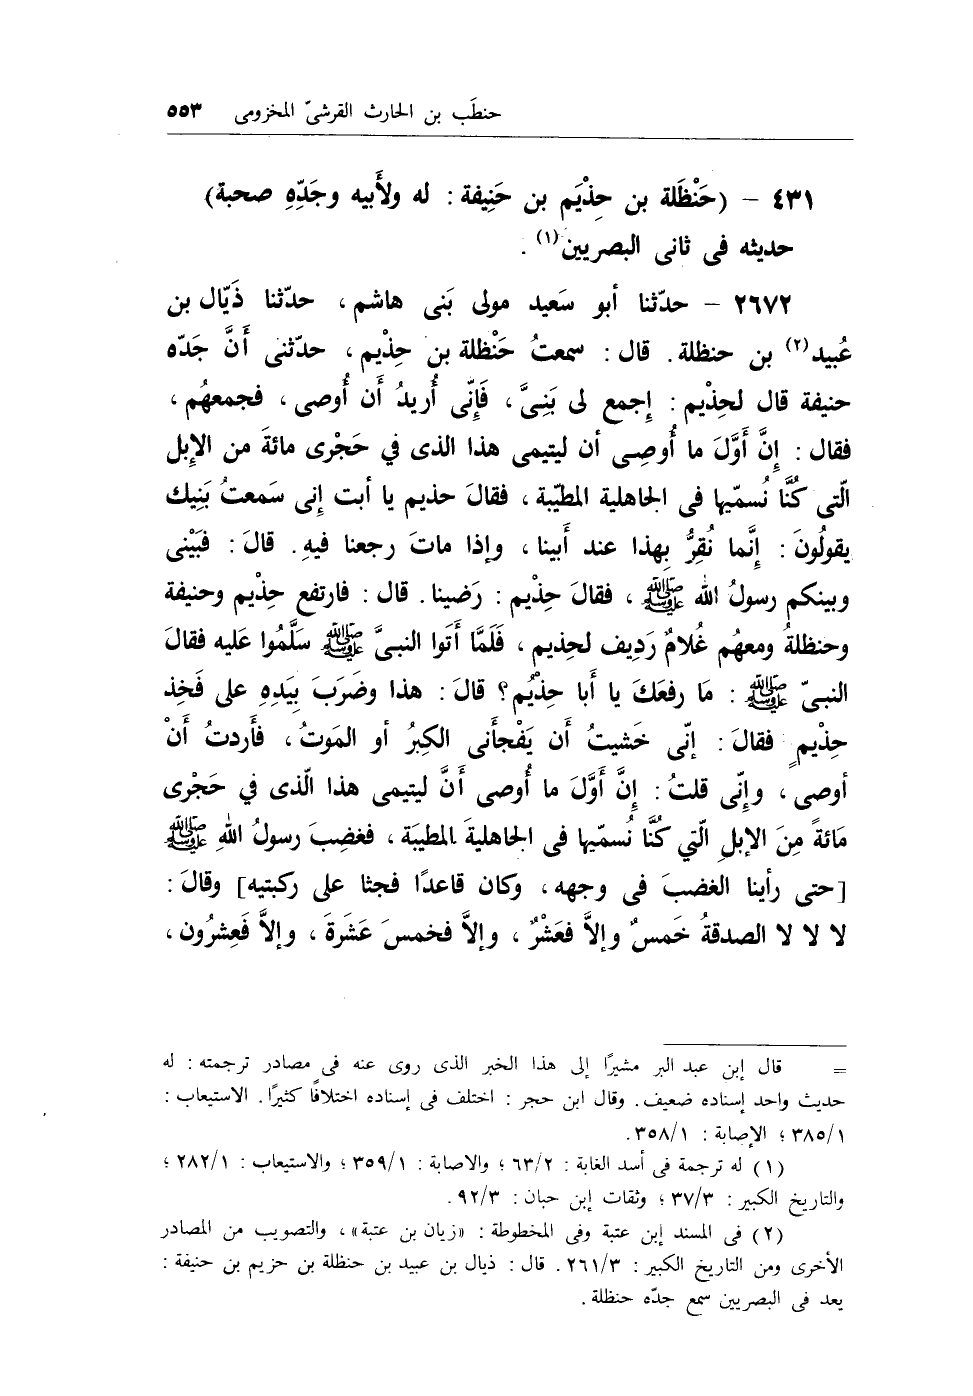 حنطَب بن الحارث القرشىّ المخزومى ٥٥٣
٤٣١ - (حَنْظَلة بن حِذْيَم بن حَنِيفة : له ولأَبيه وجَدِّهِ صحبة)
حديثه فى ثانى البصريين(١) .
٢٦٧٢ - حدّثنا أبو سَعيد مولى بَنى هاشم ، حدّثنا ذَيّال بن
عُبيد(٢) بن حنظلة . قال : سمعتُ حَنْظلة بن حِذْيم ، حدّثنى أَنَّ جَدّه
حنيفة قال لحِذْيم : إجمع لى بَنِىَّ ، فَإنّى أُريدُ أن أُوصى ، فجمعهُم ،
فقال : إنَّ أَوَّلَ ما أُوصِى أن ليتيمى هذا الذى في حَجْرى مائةَ من الإبل
الّتى كُنَّا نُسمّيها فى الجاهلية المطيّبة ، فقالَ حذيم يا أبت إنى سَمعتُ بَنِيك
يقولُونَ : إنَّما نُقِرُّ بِهذا عند أَبينا ، وإذا ماتَ رجعنا فيهِ . قالَ : فبَيْنى
وبينكم رسولُ الله ﷺ ، فقالَ حِذْيم : رَضينا . قال : فارتفع حِذْيم وحنيفة
وحنظلةُ ومعهُم غُلامٌ رَديف لحِذيم ، فَلَمَّا أَتَوا النبىَّ ﷺ سَلَّمُوا عَليه فقالَ
النبىّ ﷺ : مَا رفعَكَ يا أَبا حِذْيُم؟ قالَ : هذا وضَرَبَ بِيَدِهِ على فَخِذ
حِذْيمٍ فقالَ : إنّى خَشيتُ أن يَفْجأَنى الكِبرُ أو المَوتُ ، فأَردتُ أَنْ
أوصى ، وإنّى قلتُ : إنَّ أَوَّلَ ما أُوصى أَنَّ ليتيمى هذا الّذى في حَجْرى
مَائةً مِنَ الإبلِ الّتي كُنَّا نُسمّيها فى الجاهليةَ المطيبَة ، فغضِبَ رسولُ اللهِ ﷺ
[حتى رأينا الغضبَ فى وجهه ، وكان قاعدًا فجثا على ركبتيه] وقالَ :
لا لا لا الصدقةُ خَمسٌ وإلاَّ فعَشْرٌ ، وإلاَّ فخمسَ عَشَرةَ ، وإلاَّ فَعِشرُون ،
= قال إبن عبد البر مشيرًا إلى هذا الخبر الذى روى عنه فى مصادر ترجمته : له
حديث واحد إسناده ضعيف . وقال ابن حجر : اختلف فى إسناده اختلافًا كثيرًا . الاستيعاب :
٣٨٥/١ ؛ الإصابة : ٣٥٨/١.
(١) له ترجمة فى أسد الغابة : ٦٣/٢ ؛ والاصابة : ٣٥٩/١ ؛ والاستيعاب : ٢٨٢/١ ؛
والتاريخ الكبير : ٣٧/٣ ؛ وثقات إبن حبان : ٩٢/٣ .
(٢) فى المسند إبن عتبة وفى المخطوطة : «زيان بن عتبة» ، والتصويب من المصادر
الأخرى ومن التاريخ الكبير : ٢٦١/٣ . قال : ذيال بن عبيد بن حنظلة بن حزيم بن حنيفة :
يعد فى البصريين سمع جدّه حنظلة .